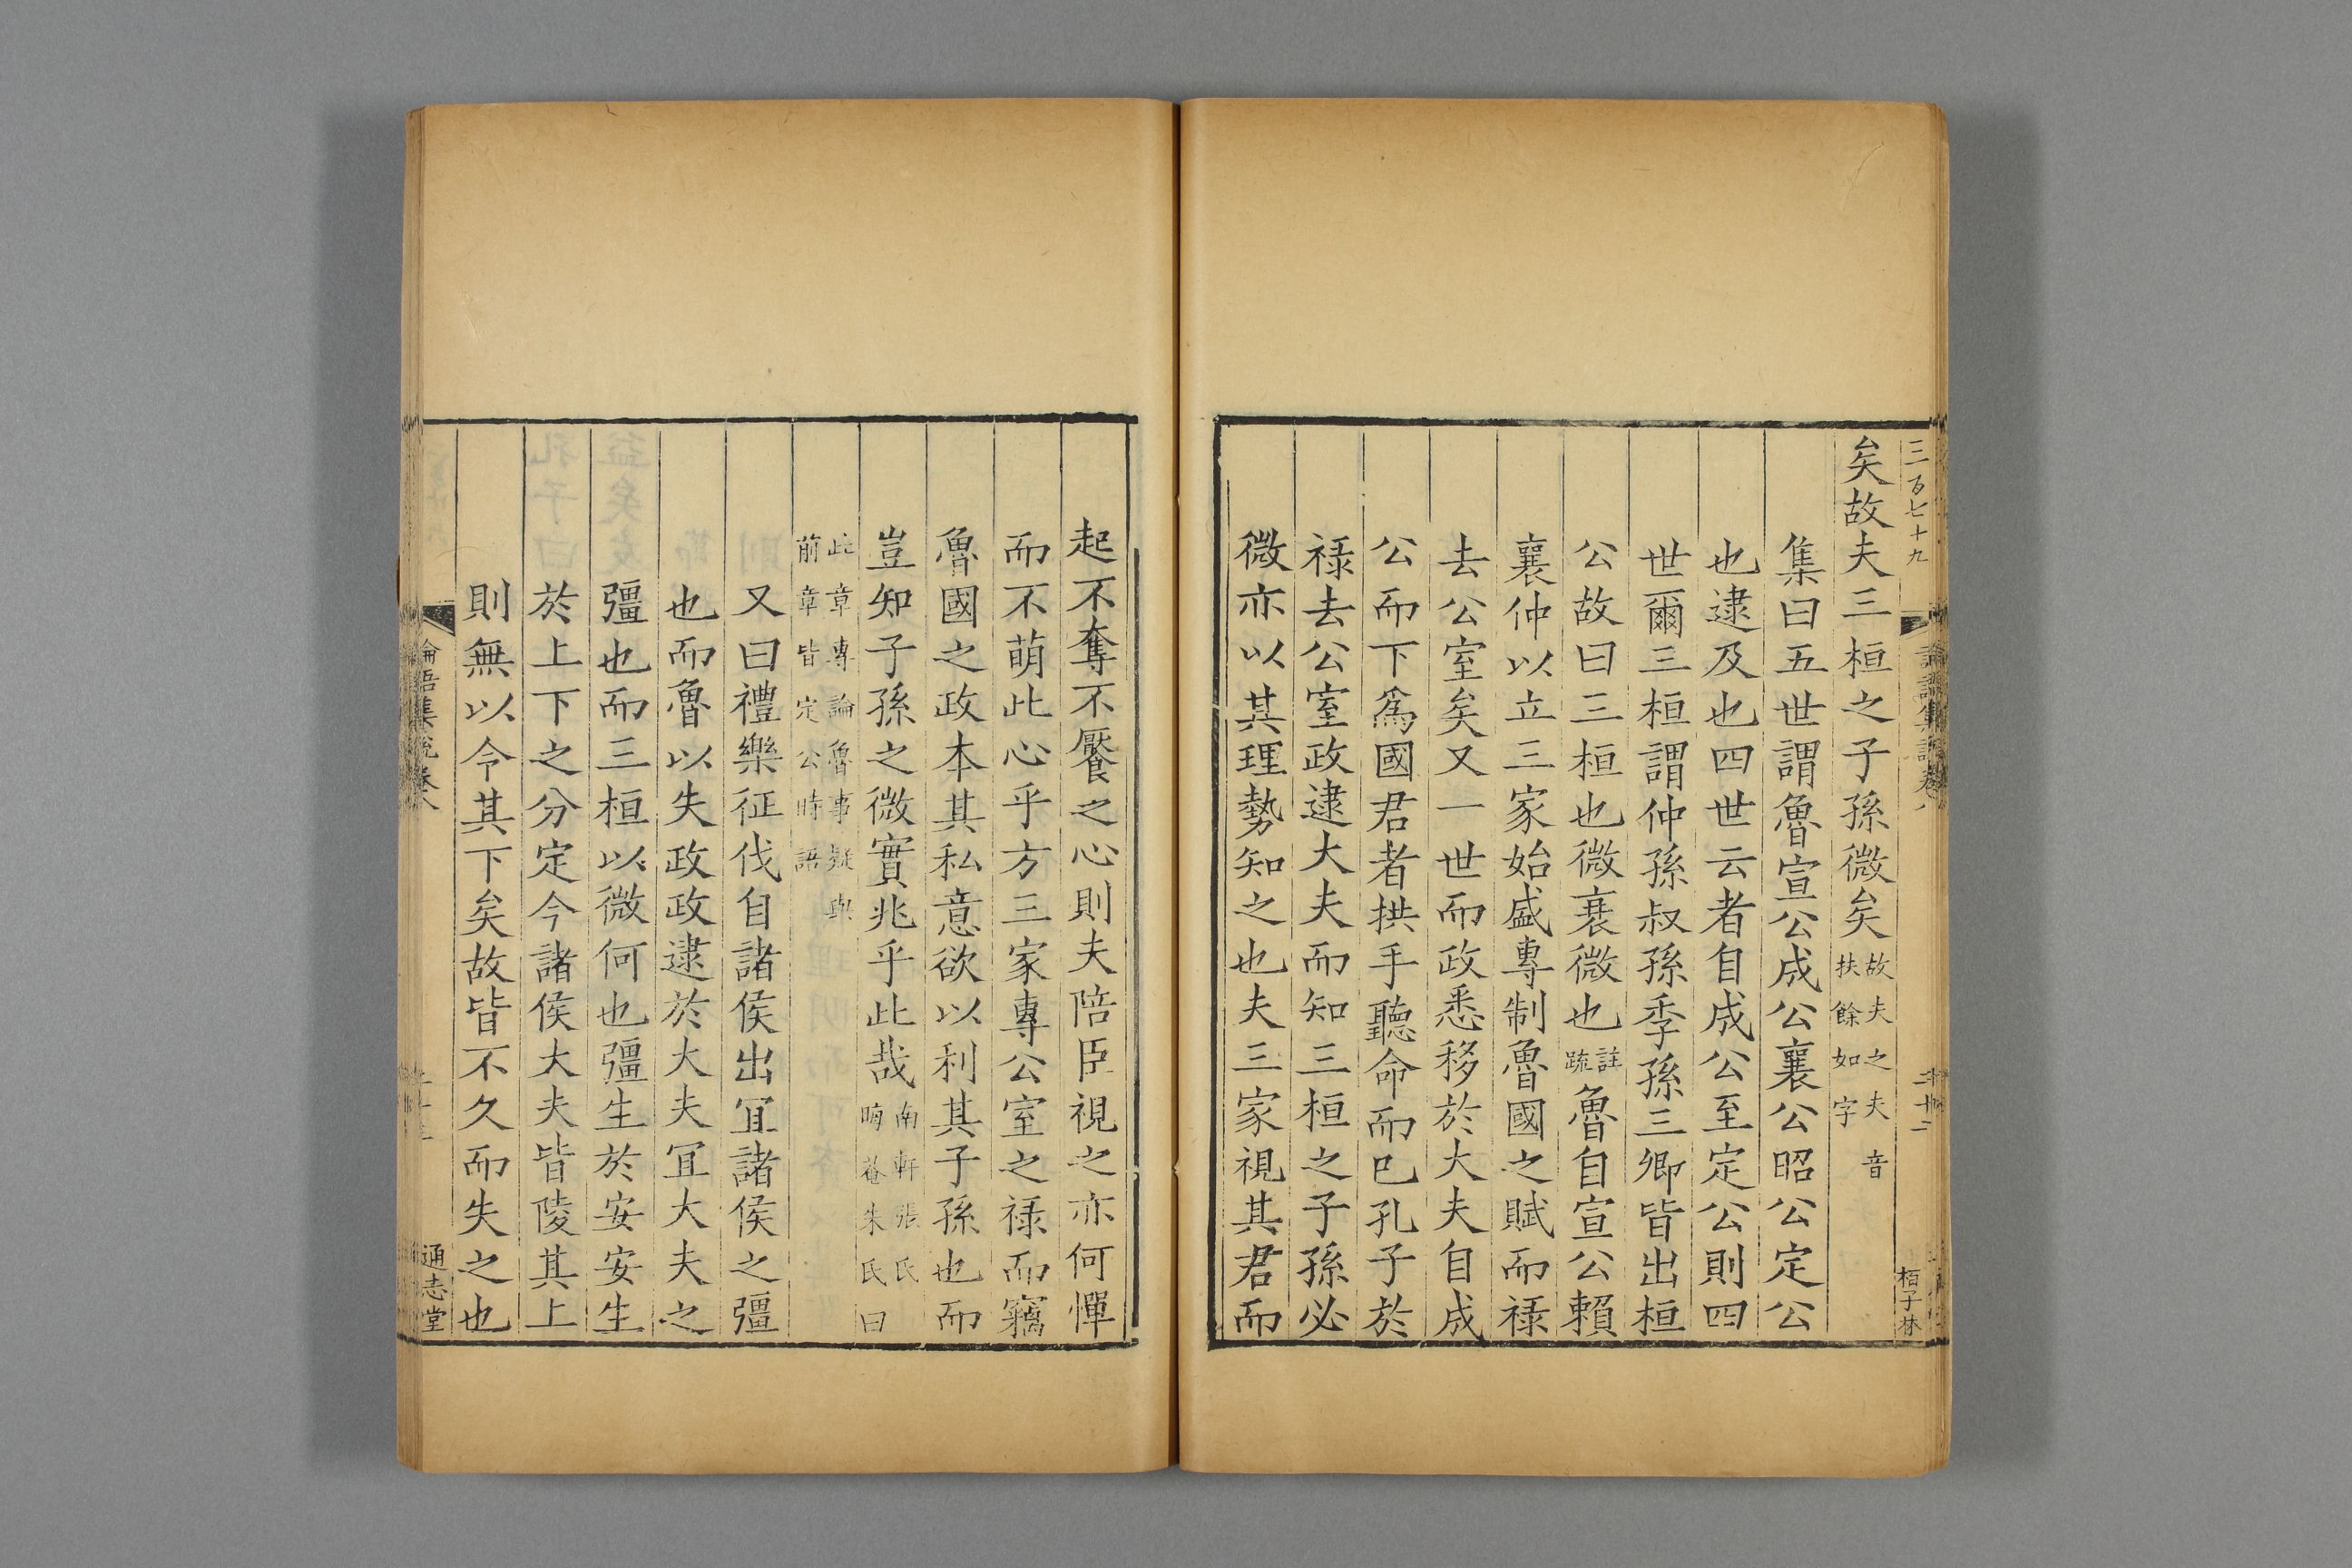 三百七十九
矣故夫三桓之子孫微矣故夫之夫音扶餘如字
集曰五世謂魯宣公成公襄公昭公定公
也逮及也四世云者自成公至定公則四
世爾三桓謂仲孫叔孫季孫三卿皆出桓
公故曰三桓也微衰微也註疏魯自宣公賴
襄仲以立三家始盛專制魯國之賦而禄
去公室矣又一世而政悉移於大夫自成
公而下爲國君者拱手聽命而巳孔子於
禄去公室政逮大夫而知三桓之子孫必
微亦以其理勢知之也夫三家視其君而
起不奪不饜之心則夫陪臣視之亦何憚
而不萌此心乎方三家專公室之禄而竊
魯國之政本其私意欲以利其子孫也而
豈知子孫之微實兆乎此哉南軒張氏晦菴朱氏曰
此章專論魯事疑與前章皆定公時語
又曰禮樂征伐自諸侯出冝諸侯之彊
也而魯以失政政逮於大夫冝大夫之
彊也而三桓以微何也彊生於安安生
於上下之分定今諸侯大夫皆陵其上
則無以令其下矣故皆不久而失之也
論語集說卷八
通志堂